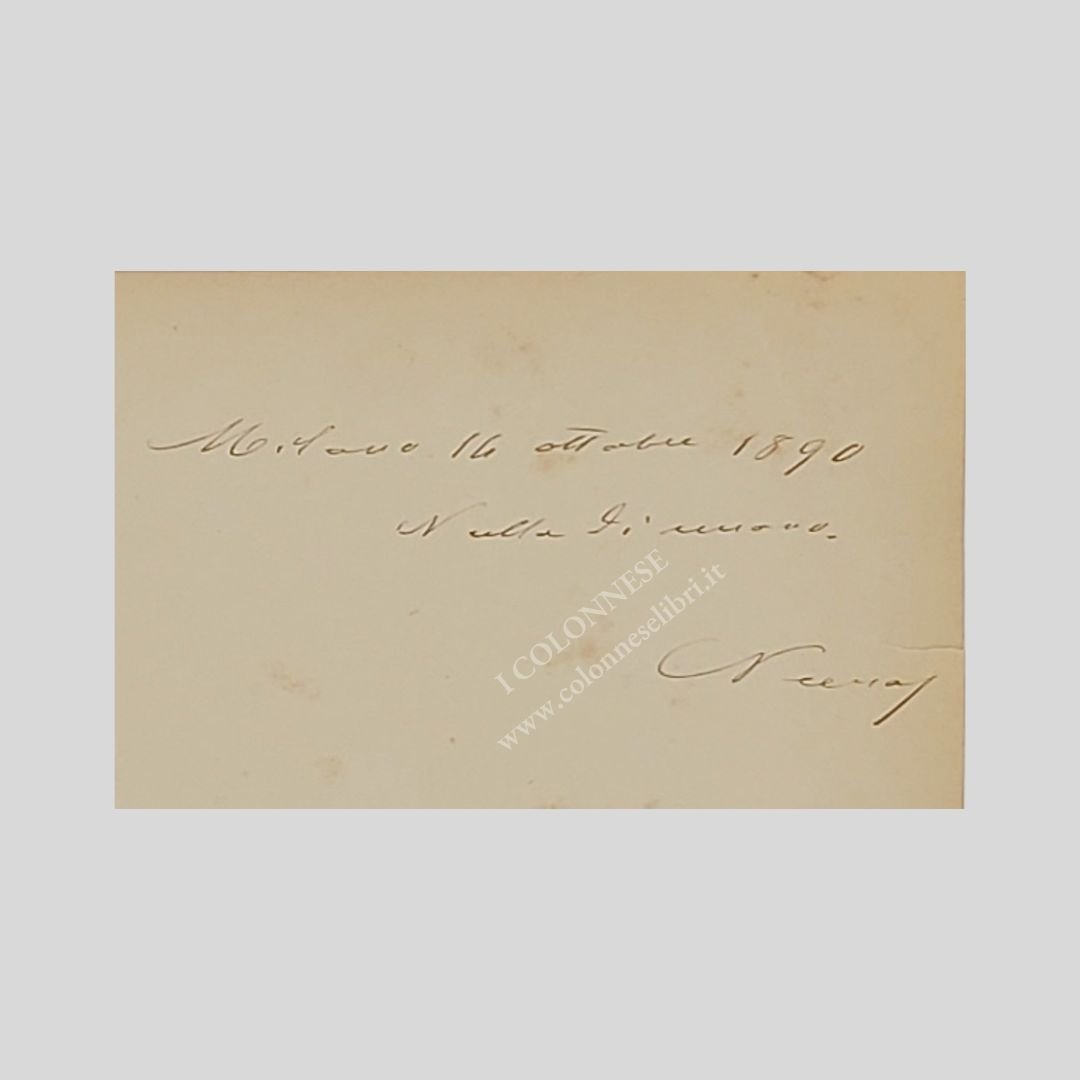 Milano 14 ottobre 1890
Nulla di nuovo.
I COLONNESE
www.colonneselibri.it